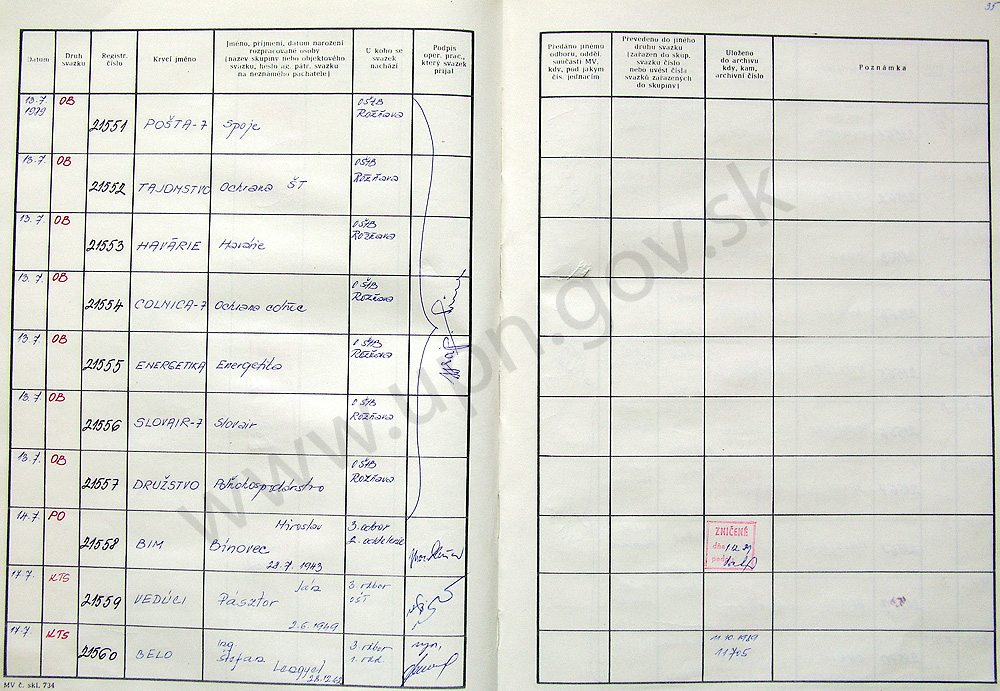 35
Datum
Druh svazku
Registr. číslo
Krycí jméno
Jméno, příjmení, datum narození rozpracované osoby (název skupiny nebo objektového svazku, heslo ag. pátr. svazku na neznámého pachatele)
U koho se svazek nachází
Podpis oper. prac., který svazek přijal
Předáno jinému odboru, odděl. součásti MV, kdy, pod jakým čís. jednacím
Převedeno do jiného druhu svazku (zařazen do skup. svazku číslo nebo uvést čísla svazků zařazených do skupiny)
Uloženo do archivu kdy, kam, archivní číslo
Poznámka
13.7. 1979 OB 21551 POŠTA-7 Spoje OŠtB Rožňava
13.7. OB 21552 TAJOMSTVO Ochrana ŠT OŠtB Rožňava
13.7. OB 21553 HAVÁRIE Havárie OŠtB Rožňava
13.7. OB 21554 COLNICA-7 Ochrana colnice OŠtB Rožňava
13.7. OB 21555 ENERGETIKA Energetika OŠtB Rožňava
13.7. OB 21556 SLOVAIR-7 Slovair OŠtB Rožňava
13.7. OB 21557 DRUŽSTVO Poľnohospodárstvo OŠtB Rožňava
14.7. PO 21558 BIM Miroslav Bínovec 28.7.1943 3. odbor 2. oddelenie
ZNIČENÉ
dňa
17.7. KTS 21559 VEDÚCI Ján Pásztor 2.6.1949 3. odbor
17.7. KTS 21560 BELO Ing Štefan Lengyel 3. odbor 1. odd. 11.10.1989 11705
MV č. skl. 734
www.upn.gov.sk